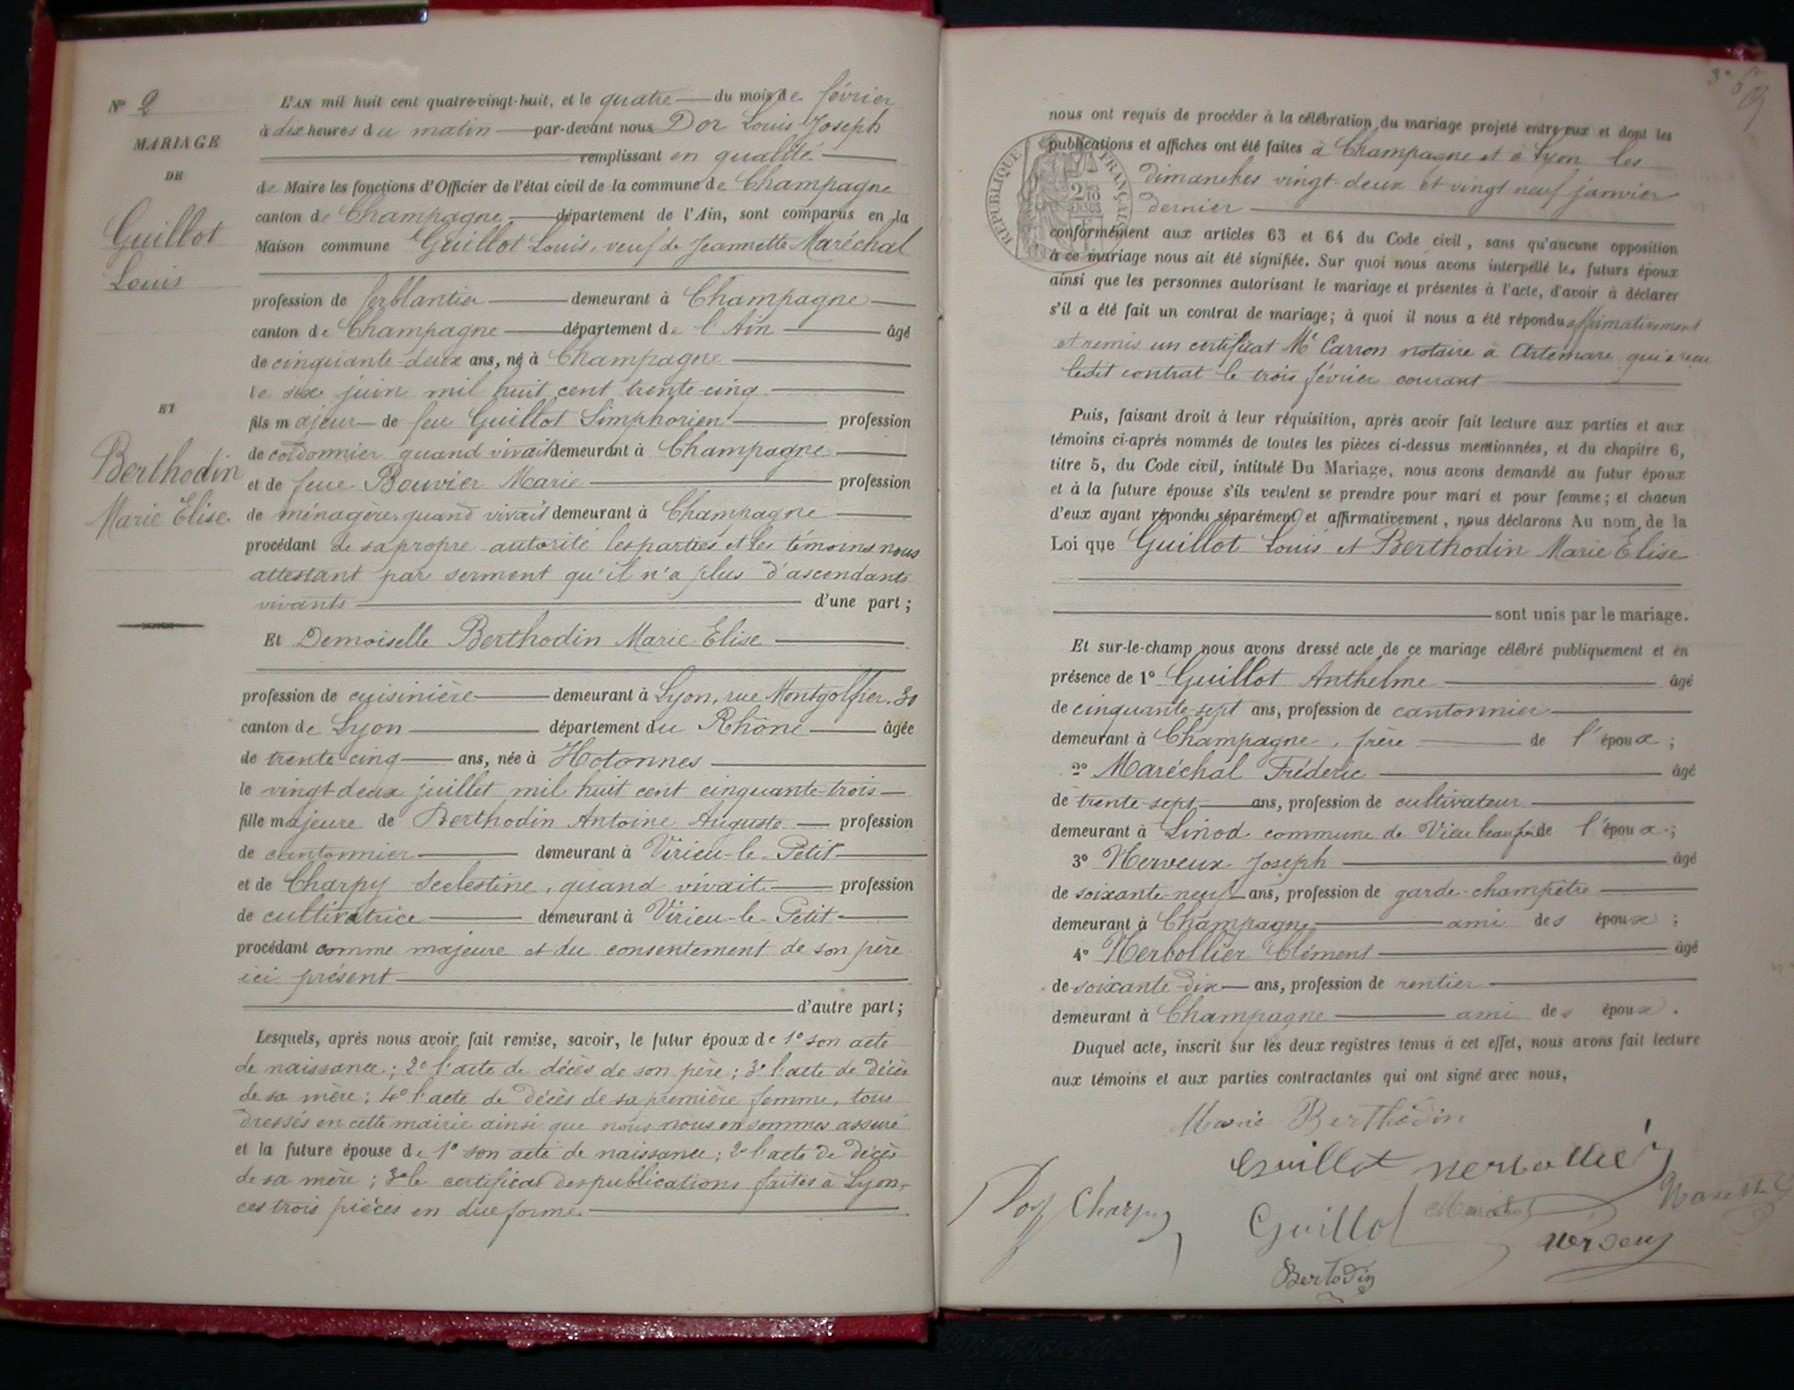 Nº 2
MARIAGE
DE
Guillot
Louis
ET
Berthodin
Marie Elise.
L'AN mil huit cent quatre-vingt-huit, et le quatre du mois de février
à dix heures du matin par-devant nous Dor Louis Joseph
remplissant en qualité
de Maire les fonctions d'Officier de l'état civil de la commune de Champagne
canton de Champagne département de l'Ain, sont comparus en la
Maison commune Guillot Louis, veuf de Jeannette Maréchal
profession de ferblantier demeurant à Champagne
canton de Champagne département de l'Ain âgé
de cinquante deux ans, né à Champagne
le six juin mil huit cent trente-cinq
fils majeur de feu Guillot Simphorien profession
de cordonnier quand vivait demeurant à Champagne
et de feue Bouvier Marie profession
de ménagère, quand vivait demeurant à Champagne
procédant de sa propre autorité les parties et les témoins nous
attestant par serment qu'il n'a plus d'ascendants
vivants d'une part ;
Et Demoiselle Berthodin Marie Elise
profession de cuisinière demeurant à Lyon, rue Montgolfier, 30
canton de Lyon département du Rhône âgée
de trente cinq ans, née à Hotonnes
le vingt deux juillet mil huit cent cinquante-trois
fille majeure de Berthodin Antoine Auguste profession
de cantonnier demeurant à Virieu-le-Petit
et de Charpy Seelestine, quand vivait profession
de cultivatrice demeurant à Virieu-le-Petit
procédant comme majeure et du consentement de son père
ici présent
d'autre part ;
Lesquels, après nous avoir fait remise, savoir, le futur époux de 1º son acte
de naissance ; 2º l'acte de décès de son père ; 3º l'acte de décès
de sa mère ; 4º l'acte de décès de sa première femme, tous
dressés en cette mairie ainsi que nous nous en sommes assuré
et la future épouse de 1º son acte de naissance ; 2º l'acte de décès
de sa mère ; 3º le certificat des publications faites à Lyon,
ces trois pièces en due forme
nous ont requis de procéder à la célébration du mariage projeté entre eux et dont les
publications et affiches ont été faites à Champagne et à Lyon les
dimanches vingt-deux et vingt neuf janvier
dernier
RÉPUBLIQUE FRANÇAISE
conformément aux articles 63 et 64 du Code civil, sans qu'aucune opposition
à ce mariage nous ait été signifiée. Sur quoi nous avons interpellé les futurs époux
ainsi que les personnes autorisant le mariage et présentes à l'acte, d'avoir à déclarer
s'il a été fait un contrat de mariage ; à quoi il nous a été répondu affirmativement
et remis un certificat Mº Carron notaire à Artemare qui a reçu
ledit contrat le trois février courant
Puis, faisant droit à leur réquisition, après avoir fait lecture aux parties et aux
témoins ci-après nommés de toutes les pièces ci-dessus mentionnées, et du chapitre 6,
titre 5, du Code civil, intitulé Du Mariage, nous avons demandé au futur époux
et à la future épouse s'ils veulent se prendre pour mari et pour femme ; et chacun
d'eux ayant répondu séparément et affirmativement, nous déclarons Au nom de la
Loi que Guillot Louis et Berthodin Marie Elise
sont unis par le mariage.
Et sur-le-champ nous avons dressé acte de ce mariage célébré publiquement et en
présence de 1º Guillot Anthelme âgé
de cinquante-sept ans, profession de cantonnier
demeurant à Champagne, frère de l'époux ;
2º Maréchal Fréderic âgé
de trente-sept ans, profession de cultivateur
demeurant à Linod commune de Vieu beaufrère de l'époux ;
3º Nerveux Joseph âgé
de soixante-neuf ans, profession de garde-champêtre
demeurant à Champagne ami des époux ;
4º Nerbollier Clément âgé
de soixante-dix ans, profession de rentier
demeurant à Champagne ami des époux.
Duquel acte, inscrit sur les deux registres tenus à cet effet, nous avons fait lecture
aux témoins et aux parties contractantes qui ont signé avec nous,
Marie Berthodin
Guillot Nerbollier
Charpy Guillot
Bertodin